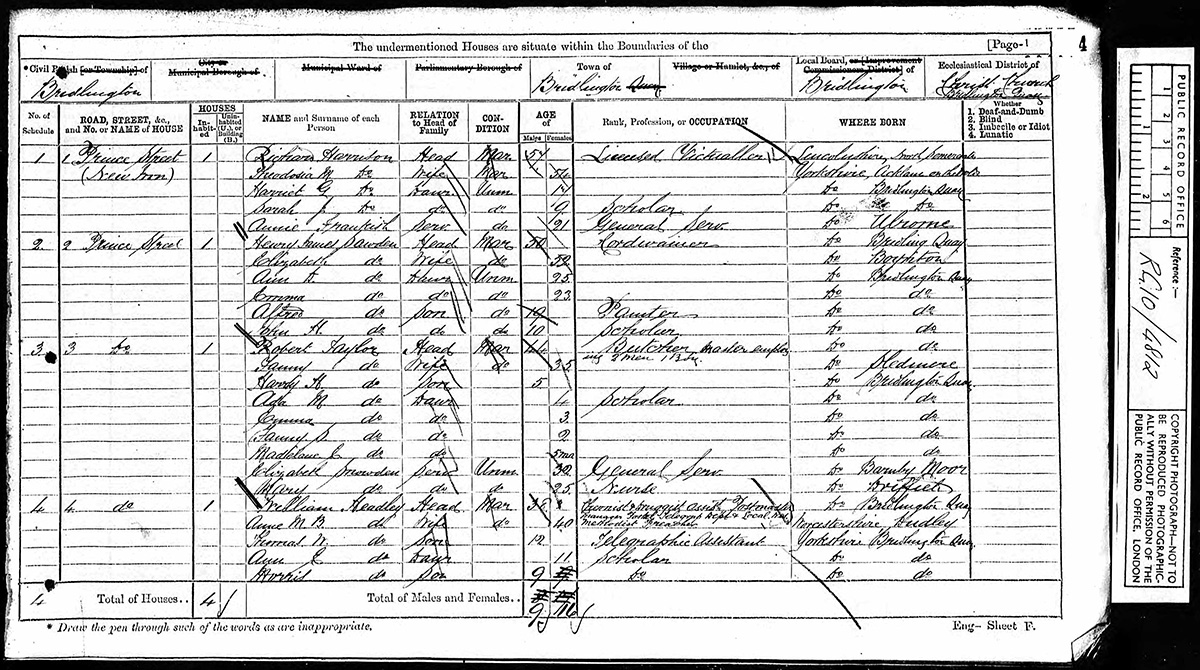 The undermentioned Houses are situate within the Boundaries of the [Page-1 4
* Civil Parish [or Township] of
Bridlington
City or Municipal Borough of
Municipal Ward of
Parliamentary Borough of
Town of
Bridlington Quay
Village or Hamlet, &c., of
Local Board, or [Improvement Commissioners District] of
Bridlington
Ecclesiastical District of
Christ Church
Bridlington Quay
No. of Schedule
ROAD, STREET, &c., and No. or NAME of HOUSE
HOUSES
Inhabited
Uninhabited (U.), or Building (B.)
NAME and Surname of each Person
RELATION to Head of Family
CONDITION
AGE of
Males
Females
Rank, Profession, or OCCUPATION
WHERE BORN
Whether
1. Deaf-and-Dumb
2. Blind
3. Imbecile or Idiot
4. Lunatic
1 1 Prince Street 1 Richard Harrison Head Mar 57 Licensed Victualler Lincolnshire, North
(New Inn) Theodosia M do Wife Mar 54 Yorkshire, Acklam
Harriet G do Daur Unm 17 Do Bridlington Quay
Sarah J do do do 9 Scholar Do do
Annie Frankish Serv do 21 General Serv Do Ulrome
2 2 Prince Street 1 Henry James Sawden Head Mar 50 Cordwainer Do Bridling Quay
Elizabeth do Wife do 52 Do Boynton
Ann do Daur Unm 25 Do Bridlington Quay
Emma do do do 23 Do do
Alfred do Son do 19 Do do
John H do do do 10 Scholar Do do
3 3 Do 1 Robert Taylor Head Mar 44 Butcher Master employ Do do
ing 2 men 1 Boy
Fanny do Wife do 35 Do Sledmere
Harry A do Son 5 Do Bridlington Quay
Ada M do Daur 4 Scholar Do do
Emma do do 3 Do do
Fanny S do do 2 Do do
Madeline do do 5mo Do do
Elizabeth Snowden Serv Unm 32 General Serv Do Barmby Moor
Mary do do do 25 Nurse Do Driffield
4 4 do 1 William Headley Head Mar 38 Chemist & Druggist Assist Postmaster Do Bridlington Quay
Manager Telegraph Dept & Local
Methodist Preacher
Anne M B do Wife do 40 Worcestershire, Dudley
Thomas W do Son 12 Telegraphic Assistant Yorkshire Bridlington Quay
Ann E do Daur 11 Scholar Do do
do Son 9 Do Do do
4 Total of Houses.. 4 Total of Males and Females.. 9 16
* Draw the pen through such of the words as are inappropriate.
Eng- Sheet F.
PUBLIC RECORD OFFICE
1 2 3 4 5 6
1 2
Reference :-
RG10/4812
COPYRIGHT PHOTOGRAPH-NOT TO BE REPRODUCED PHOTOGRAPHICALLY WITHOUT PERMISSION OF THE PUBLIC RECORD OFFICE, LONDON